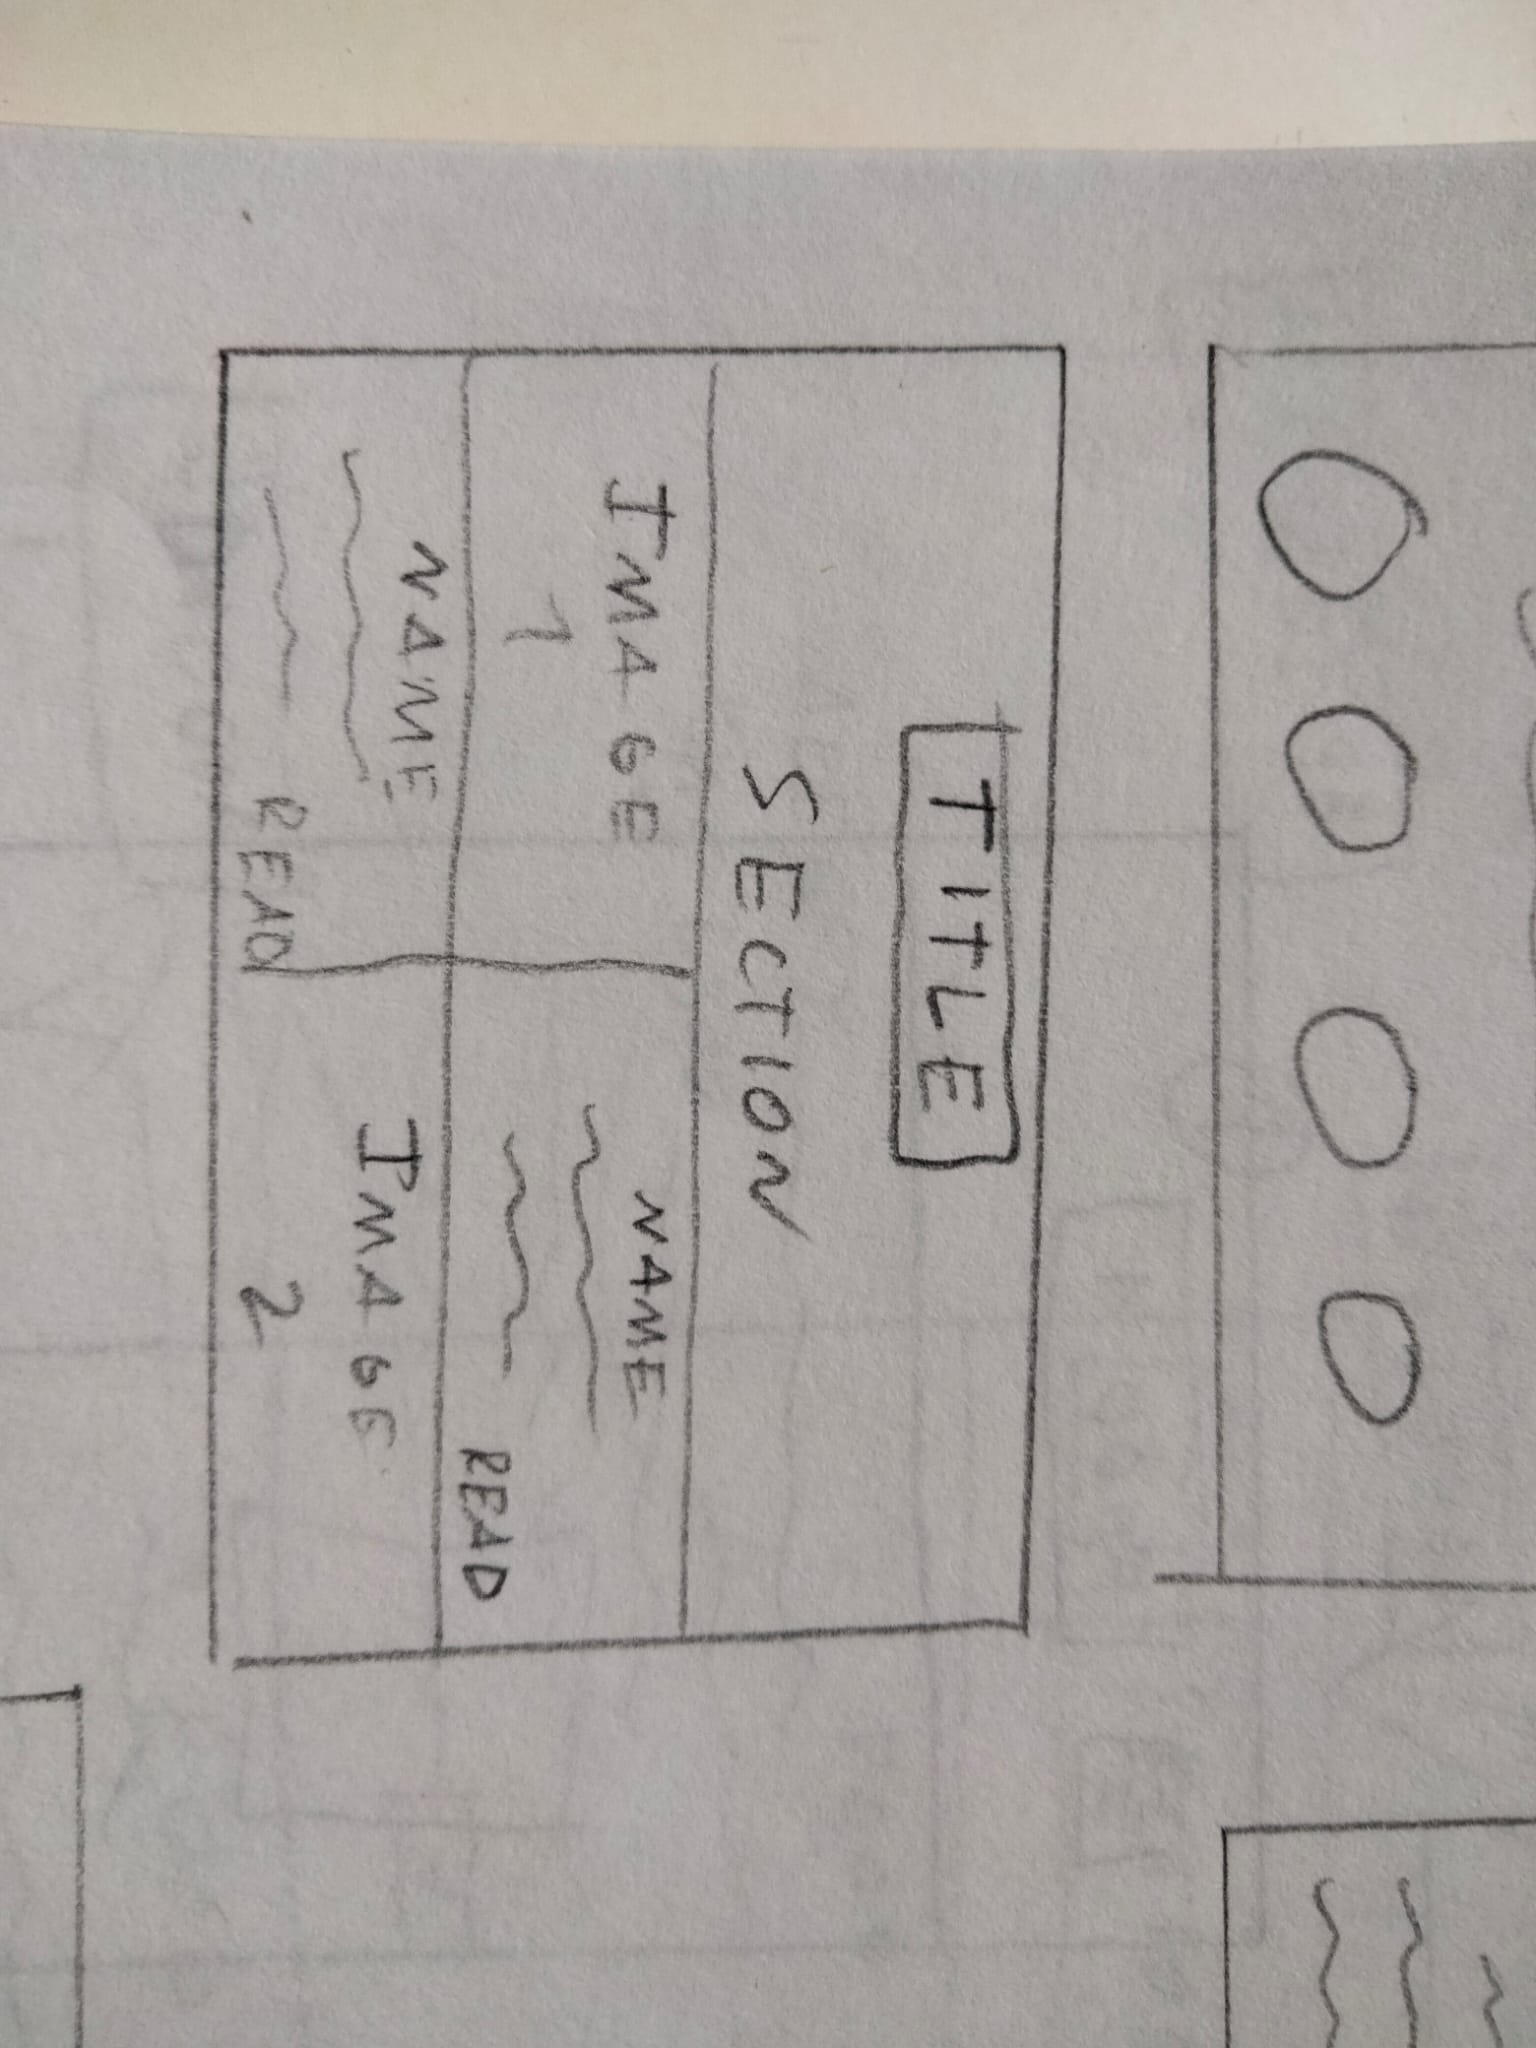 TITLE
SECTION
IMAGE
1
NAME
READ
NAME
READ
IMAGE
2